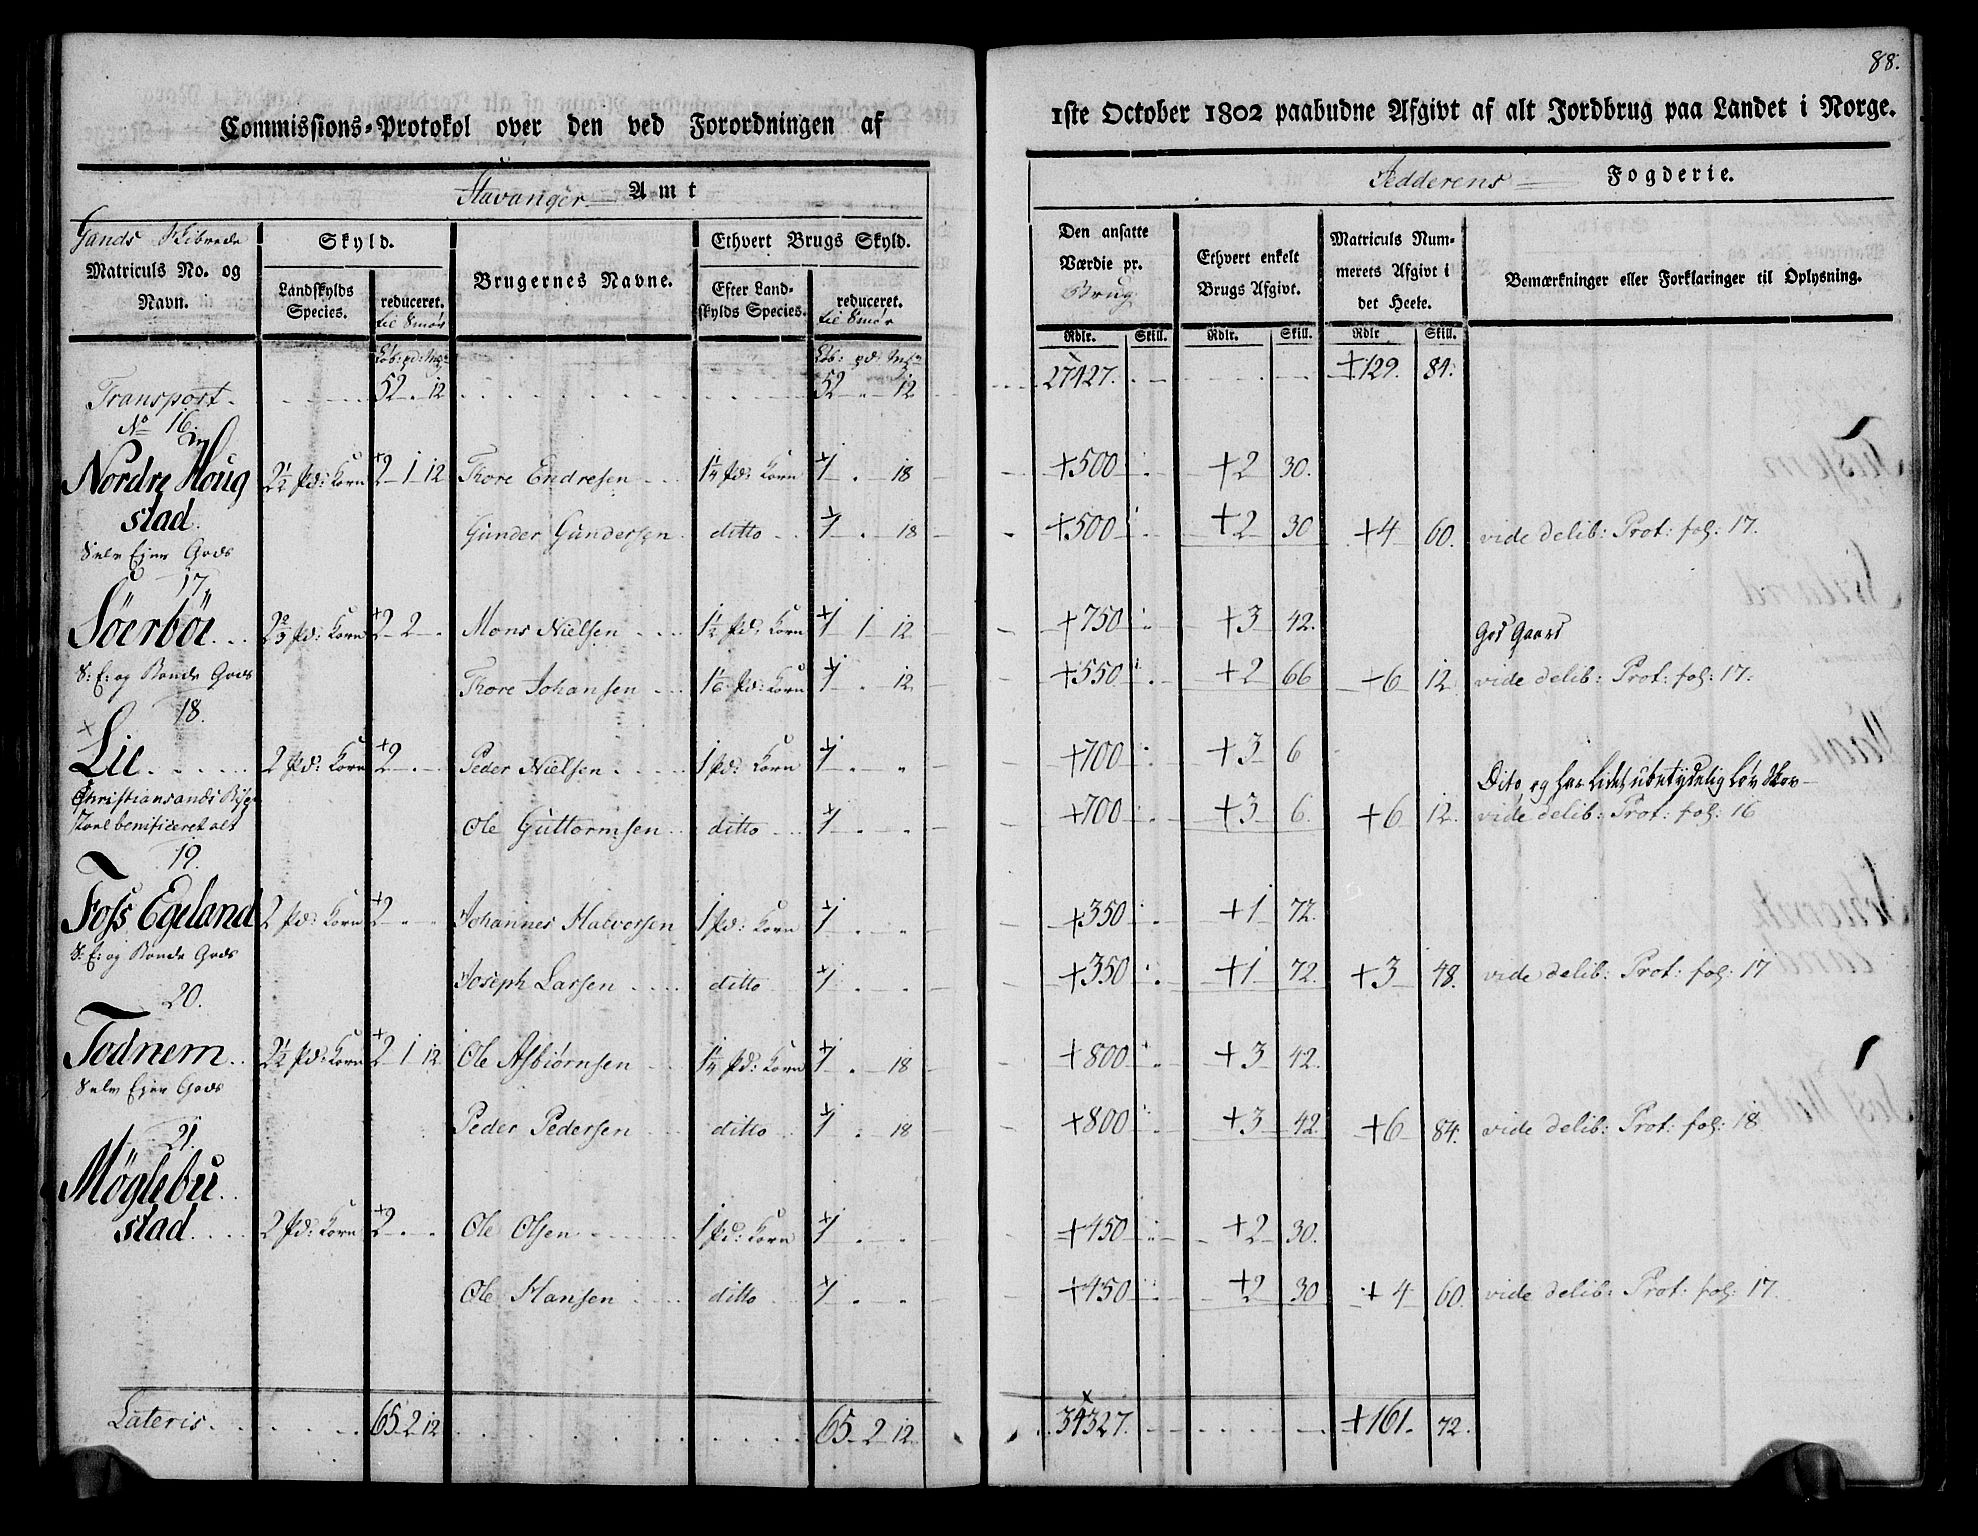 88.
Commissions-Protokol over den ved Forordningen af
1ste October 1802 paabudne Afgivt af alt Jordbrug paa Landet i Norge.
Stavanger Amt
Jedderens Fogderie.
Gands Skibrede
Matriculs No. og Navn.
Skyld.
Landskylds Species.
reduceret. til Smør
Brugernes Navne.
Ethvert Brugs Skyld.
Efter Landskylds Species.
reduceret. til Smør
Den ansatte Værdie pr. Brug
Ethvert enkelt Brugs Afgivt.
Matriculs Nummerets Afgivt i det Heele.
Bemærkninger eller Forklaringer til Oplysning.
Rdlr. Skill. Rdlr. Skill. Rdlr Skill.
Løb: pd: Løb: pd:
Transport. 52 . 12 52 . 12 27427. +129. 84.
No 16.
Nordre Houg 2½ Pd: Korn +2 1 12 Thore Endresen 1¼ Pd: Korn +1 . 18 +500 +2 30.
stad. Gunder Gundersen ditto +1 . 18 +500 +2 30 +4 60. vide delib: Prot: fol: 17.
Selv Ejer Gods
17.
Söerböe 2⅔ Pd: Korn +2 2 . Mons Nielsen 1½ Pd: Korn +1 1 12 +750 +3 42. God Gaard
S: E: og Bonde Gods Thore Johansen 1⅙ Pd: Korn +1 . 12 +550 +2 66 +6 12 vide delib: Prot: fol: 17.
18.
× Lie 2 Pd: Korn +2 . Peder Nielsen 1 Pd: Korn +1 . . +700 +3 6
Christiansands Dito og har lidet ubetydelig Løv Skov
benificeret alt Ole Guttormsen ditto +1 . . +700 +3 6. +6 12. vide delib: Prot: fol: 16
19.
Foss Egeland 2 Pd: Korn +2 . . Johannes Halvorsen 1 Pd: Korn +1 . . +350 +1 72.
S: E: og Bonde Gods Joseph Larsen ditto +1 . . +350 +1 72 +3 48. vide delib: Prot: fol: 17
20.
Todnem 2½ Pd: Korn +2 1 12 Ole Asbiørnsen 1¼ Pd: Korn +1 . 18 +800 +3 42.
Selv Ejer Gods Peder Pedersen ditto +1 . 18 +800 +3 42 +6 84. vide delib: Prot: fol: 18
21.
Möglebu
stad 2 Pd: Korn +2 . . Ole Olsen 1 Pd: Korn +1 . . +450 +2 30.
Ole Hansen ditto +1 . . +450 +2 30 +4 60. vide delib: Prot: fol: 17.
Lateris 65 2 12 65 2 12 34327. +161. 72.